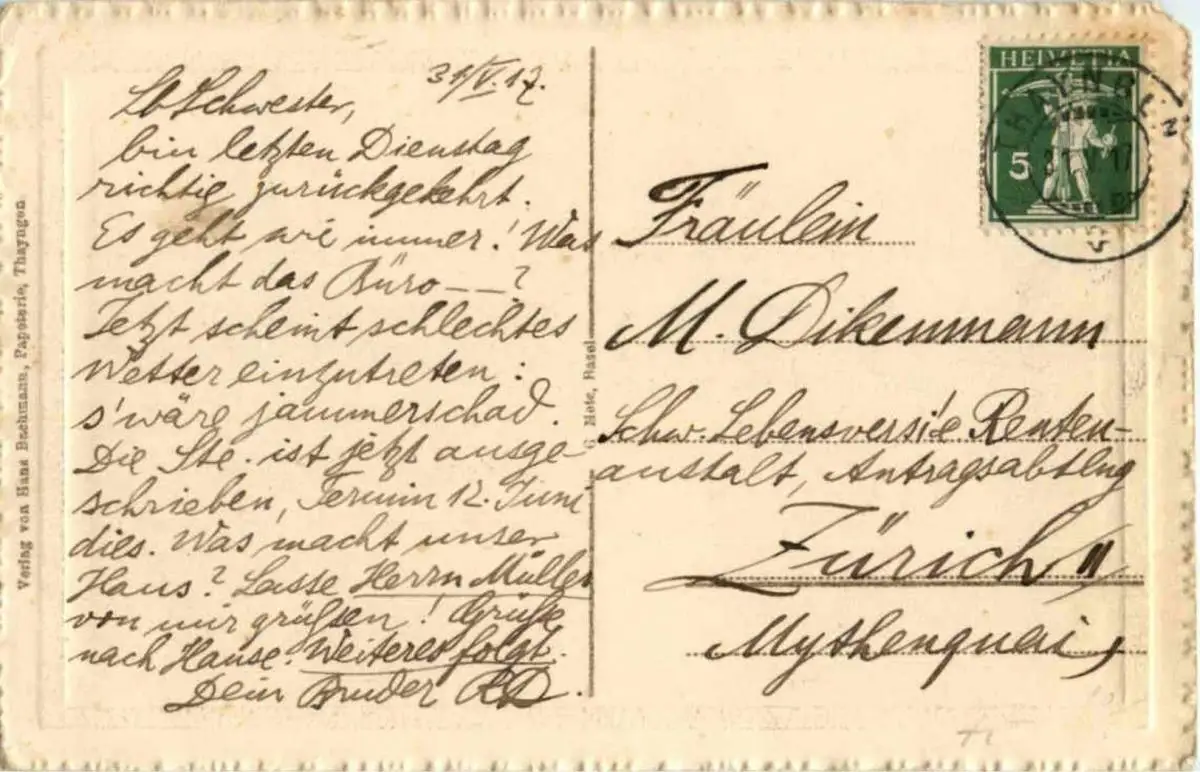 31/V.17.
Lb Schwester,
bin letzten Dienstag
richtig zurückgekehrt.
Es geht wie immer! Was
macht das Büro — — ?
Jetzt scheint schlechtes
Wetter einzutreten :
s'wäre jammerschad.
Die Ste. ist jetzt ausge-
schrieben, Termin 12. Juni
dies. Was macht unser
Haus? Lasse Herrn Müller
von mir grüßen! Grüße
nach Hause. Weiteres folgt.
Dein Bruder RD.
Verlag von Hans Bachmann, Papeterie, Thayngen.
G. Metz, Basel
HELVETIA
5
THAYNGEN
31 V 17
Fräulein
M. Dikenmann
Schw. Lebensvers. & Renten-
anstalt, Antragsabtlng
Zürich II
Mythenquai,